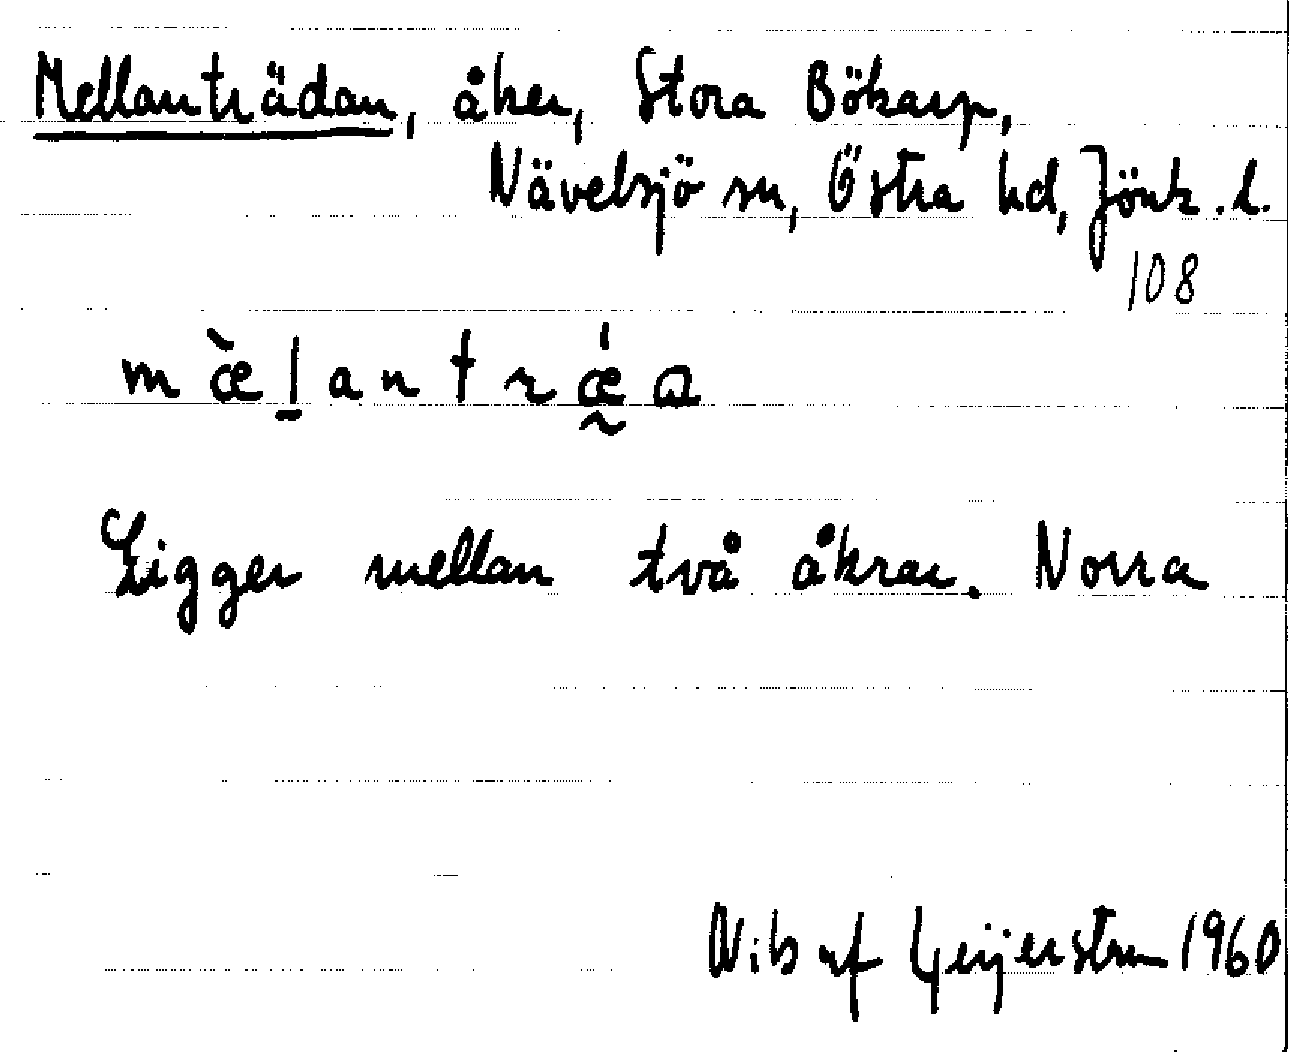 Mellanträdan, åker, Stora Bökarp,
Nävelsjö sn, Östra hd, Jönk. l.
108
m æ̀ l̠ a n t r ǽ̰ ɑ
Ligger mellan två åkrar. Norra
Nils af Geijerstam 1960